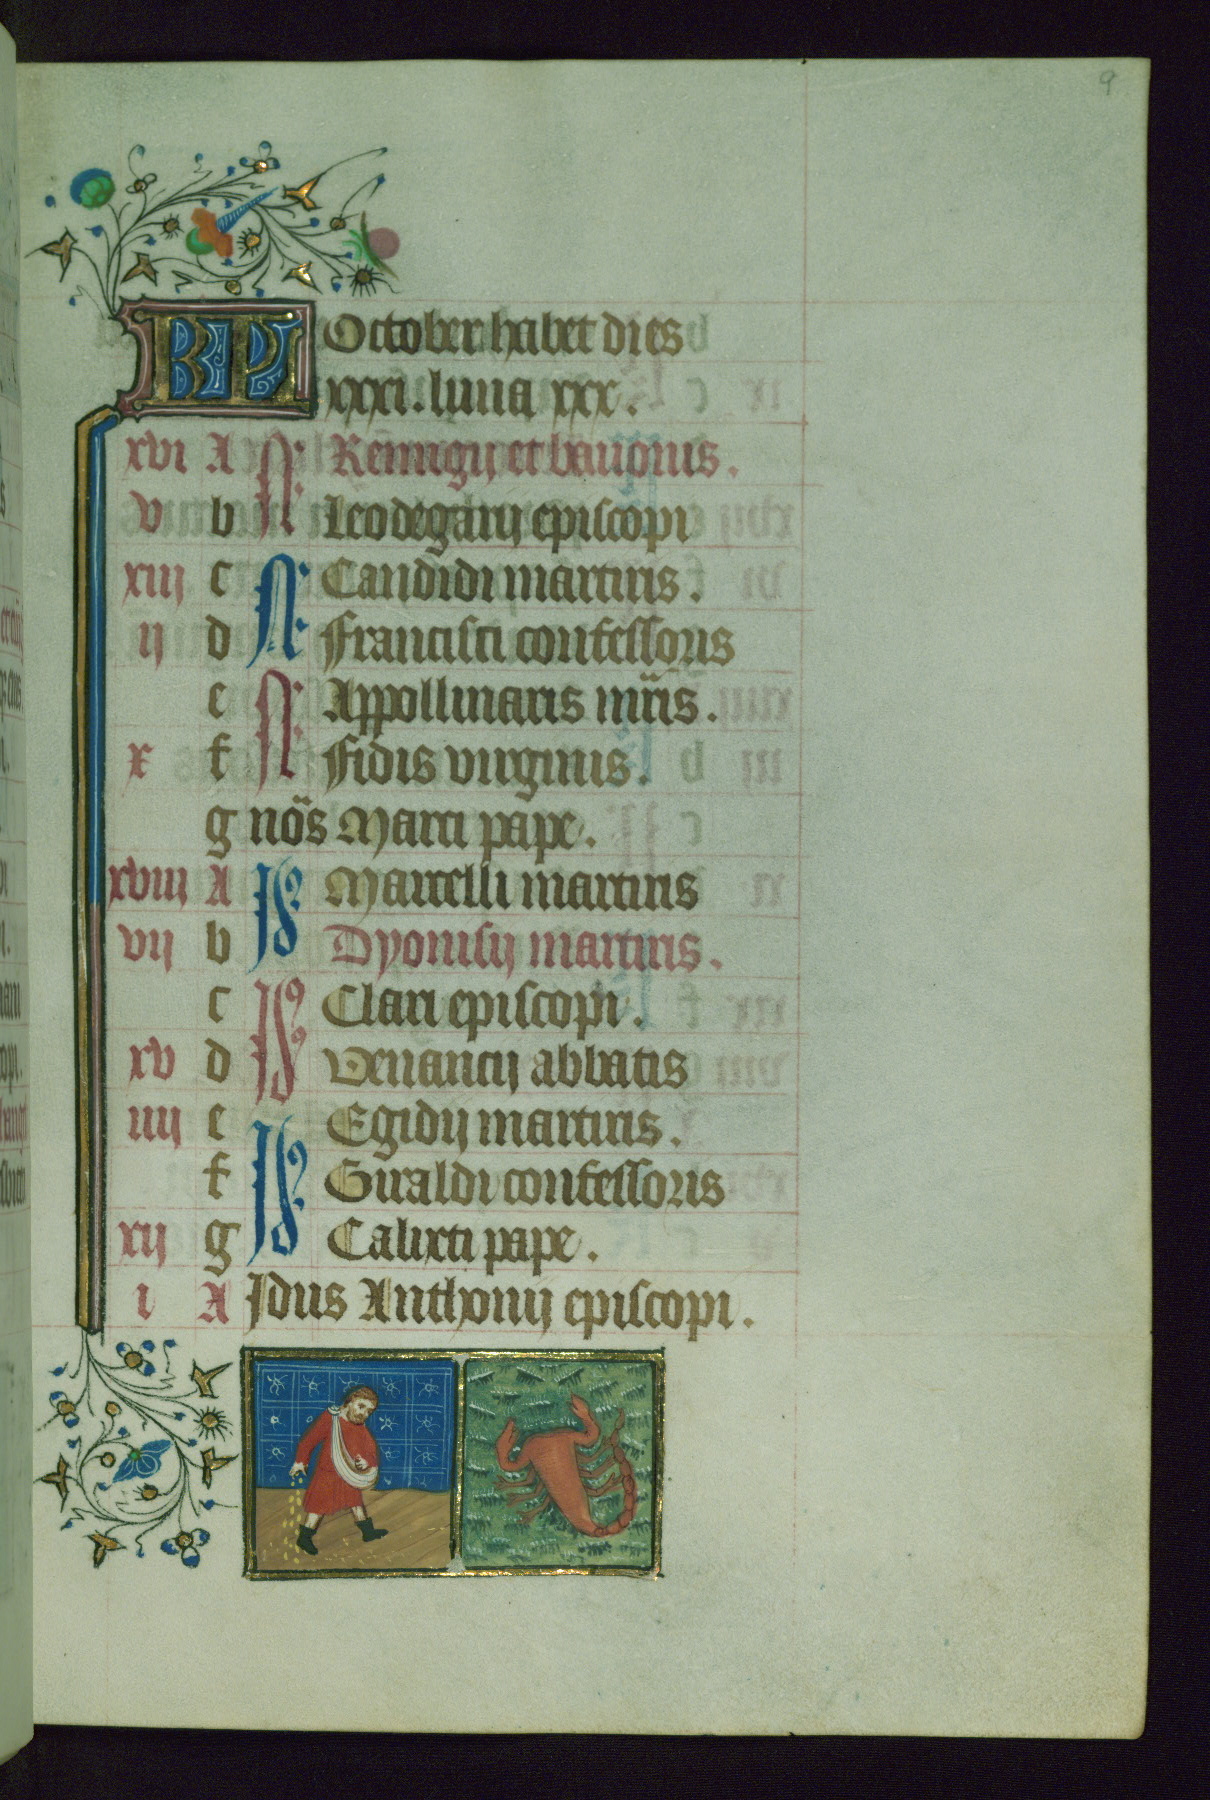 9
KL October habet dies
xxxi. luna xxx.
xvi A N Remigij et bauonis.
v b N Leodegarij episcopi
xiii c N Candidi martiris.
ii d N Francisci confessoris
e N Appollinaris mr̄is.
x f N Fidis virginis.
g nōs Marci pape.
xviii A Id Marcelli martiris
vii b Dyonisij martiris.
c Id Clari episcopi.
xv d Venancij abbatis
iiii e Id Egidij martiris.
f Giraldi confessoris
xii g Calixti pape.
i A Idus Anthonij episcopi.